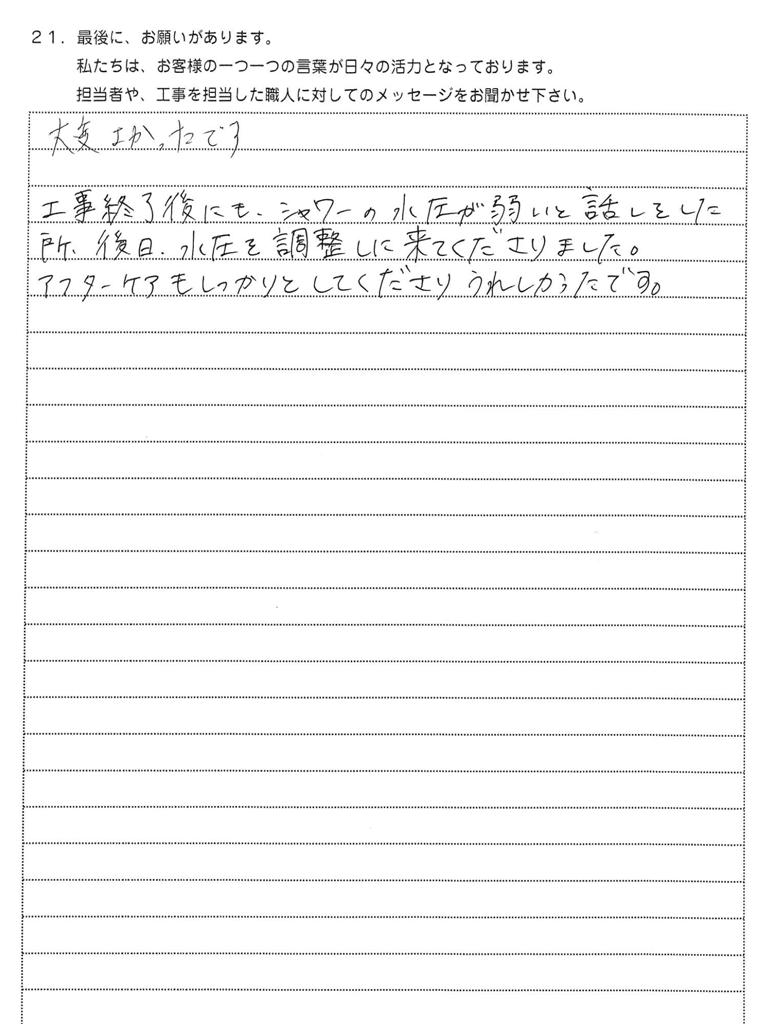 21. 最後に、お願いがあります。
私たちは、お客様の一つ一つの言葉が日々の活力となっております。
担当者や、工事を担当した職人に対してのメッセージをお聞かせ下さい。
大変よかったです
工事終了後にも、シャワーの水圧が弱いと話しをした
所、後日、水圧を調整しに来てくださりました。
アフターケアもしっかりとしてくださりうれしかったです。